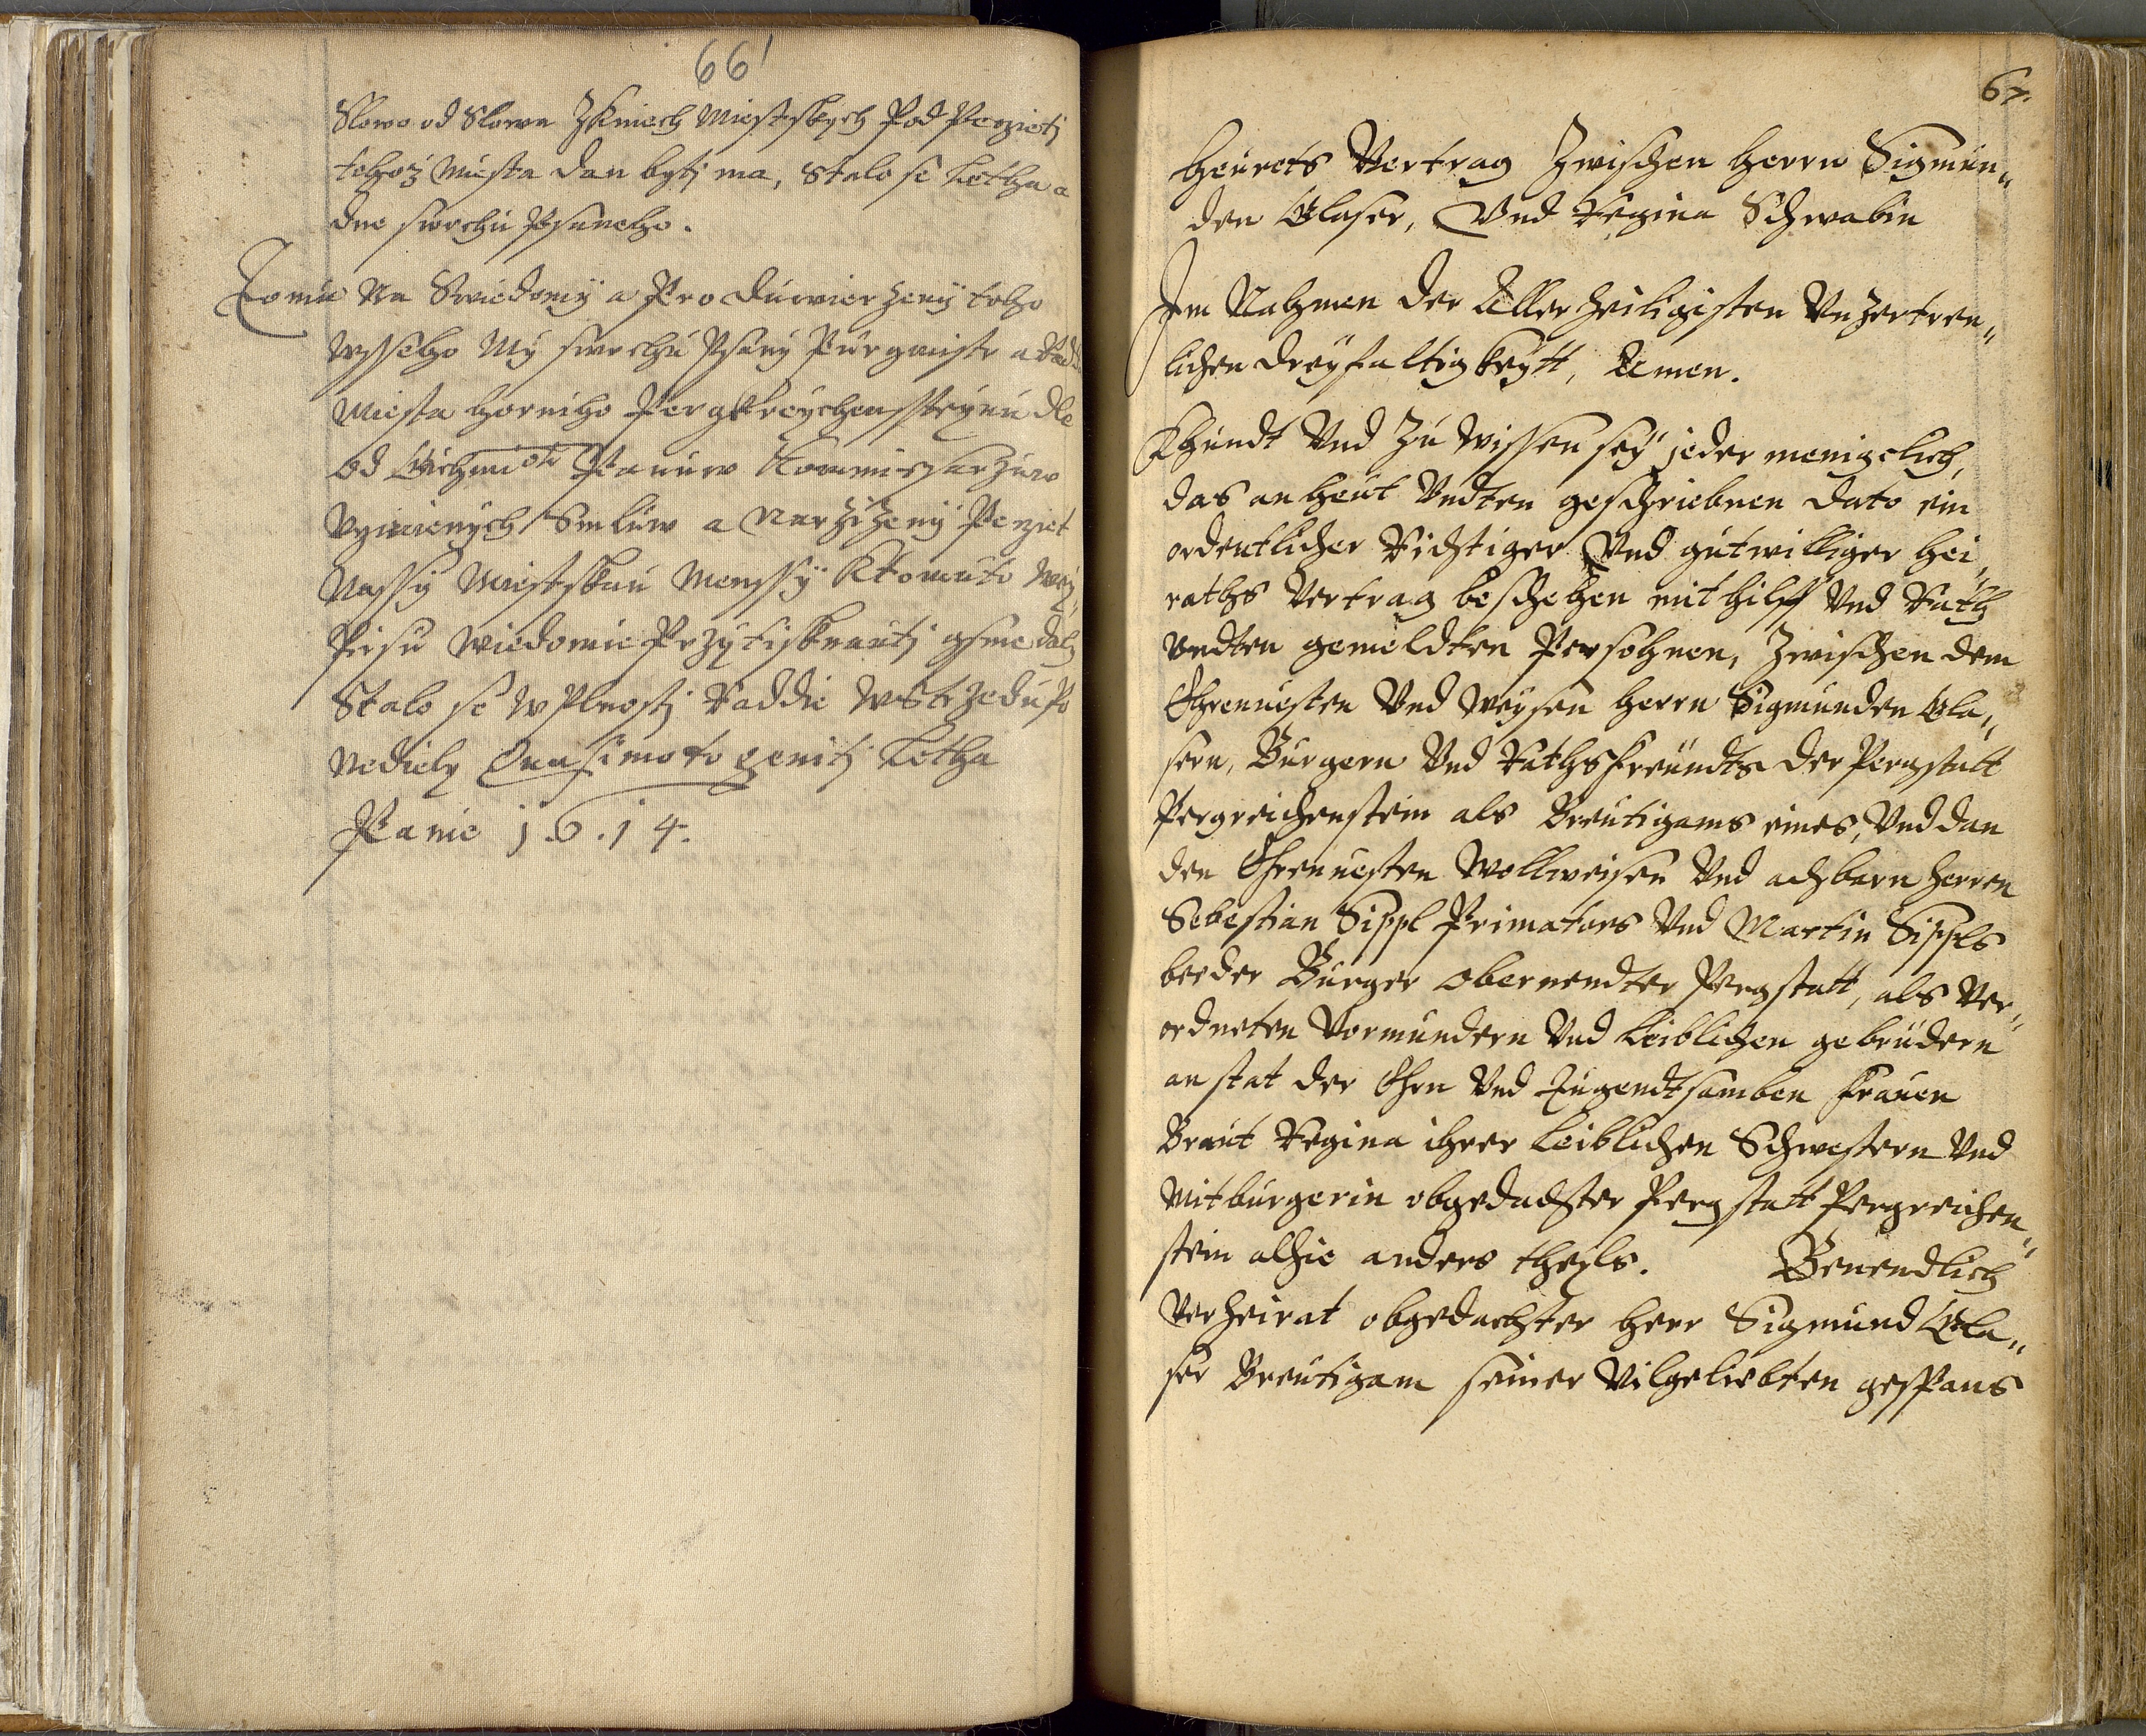 66'
Slowo od Slowa Z Kniech Miestskych Pod Peczietj
tehoż Miesta dan bytj ma, Stalo se Letha a
dne swrchu Psaneho.
Tomu Na Swiedomÿ a Pro duwierżenÿ toho
wsseho Mÿ swrchu Psanÿ Purgmistr a Radda
Miesta Horniho Pergkreychensstejnu dle
od Gichmiosti Panuw Kommissarżuw
Vcżinenych Smluw a Narżiżenÿ Peczet
Nassÿ Miestskau Menssÿ K tomuto
Pisu Wiedomie Przytisknauti gsme dalj
Stalo se w Plnosti Raddie w Strżedu Po
Nedielj Quasimoto geniti Letha
Panie 1.6.1 4.
67.
Heurats Vertrag Zwischen herrn Sigmun„
den Glaser, Vnd Regina Schwabin
Im Nahmen der Aller heiligisten Vnzertren„
lichen dreyfaltigkeÿtt, Amen.
Khundt Vnd Zu wissen seÿ jeder menigclich,
das an heut Vndten geschriebnen dato ein
ordentlicher Richtiger Vnd gutwilliger Hei„
raths Vertrag beschehen mit hilff Vnd Rath
Vndten gemeldten Persohnen, Zwischen dem
Ehrnuesten Vnd Weysen herrn Sigmunden Gla„
sern, Burgern Vnd Rathsfreundts der Pergstatt
Pergreichenstein als Breutigams eines, Vnd dan
den Ehrnuesten Wollweisen Vnd achbarn herren
Sebestian Sippl Primators Vnd Martin Sippls
beeder Burger obernendter Pergstatt, als Ver„
ordneten Vormundern Vnd Leiblichen gebrüdern
an stat der Ehrn Vnd Tugendtsamben frauen
Braut Regina ihrer Leiblichen Schwestern Vnd
Mitburgerin obgedachter Pergstatt Pergreichen„
stein alhie anders theyls. Benendlich
Verheirat obgedachter Herr Sigmund Gla„
ser Breutigam seiner Vilgeliebten gespons